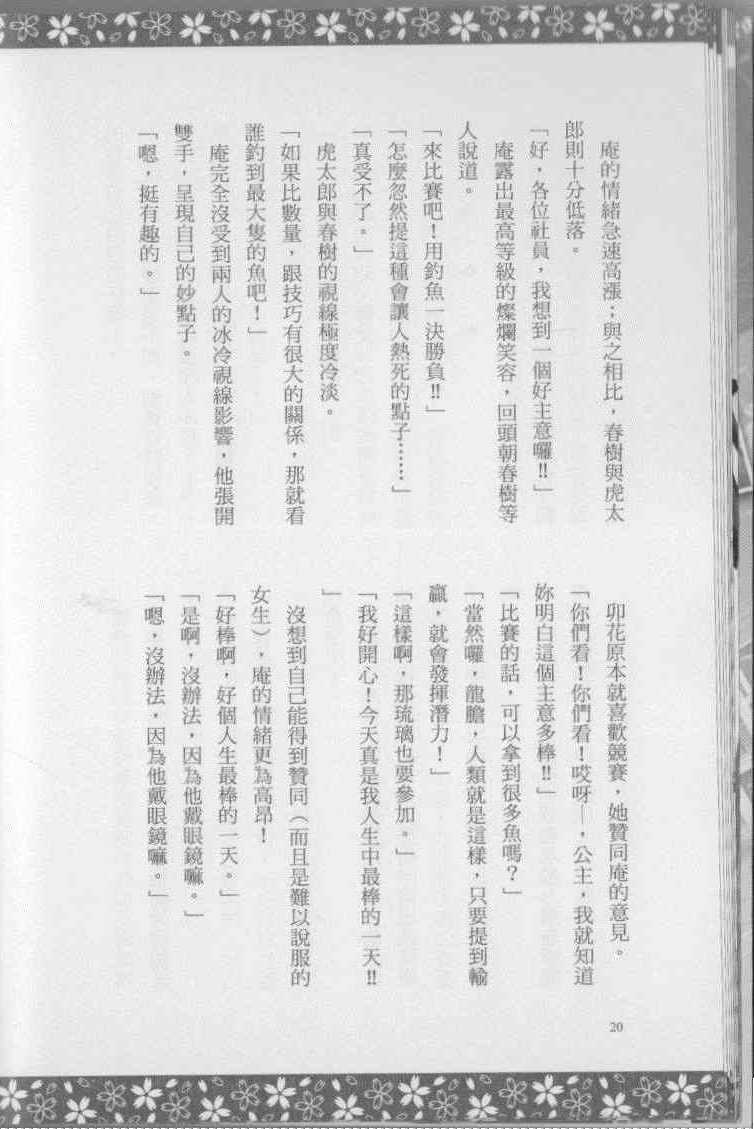 庵的情緒急速高漲；與之相比，春樹與虎太
郎則十分低落。
「好，各位社員，我想到一個好主意囉!!」
庵露出最高等級的燦爛笑容，回頭朝春樹等
人說道。
「來比賽吧！用釣魚一決勝負!!」
「怎麼忽然提這種會讓人熱死的點子……」
「真受不了。」
虎太郎與春樹的視線極度冷淡。
「如果比數量，跟技巧有很大的關係，那就看
誰釣到最大隻的魚吧！」
庵完全沒受到兩人的冰冷視線影響，他張開
雙手，呈現自己的妙點子。
「嗯，挺有趣的。」
卯花原本就喜歡競賽，她贊同庵的意見。
「你們看！你們看！哎呀─，公主，我就知道
妳明白這個主意多棒!!」
「比賽的話，可以拿到很多魚嗎？」
「當然囉，龍膽，人類就是這樣，只要提到輸
贏，就會發揮潛力！」
「這樣啊，那琉璃也要參加。」
「我好開心！今天真是我人生中最棒的一天!!
」
沒想到自己能得到贊同（而且是難以說服的
女生），庵的情緒更為高昂！
「好棒啊，好個人生最棒的一天。」
「是啊，沒辦法，因為他戴眼鏡嘛。」
「嗯，沒辦法，因為他戴眼鏡嘛。」
20